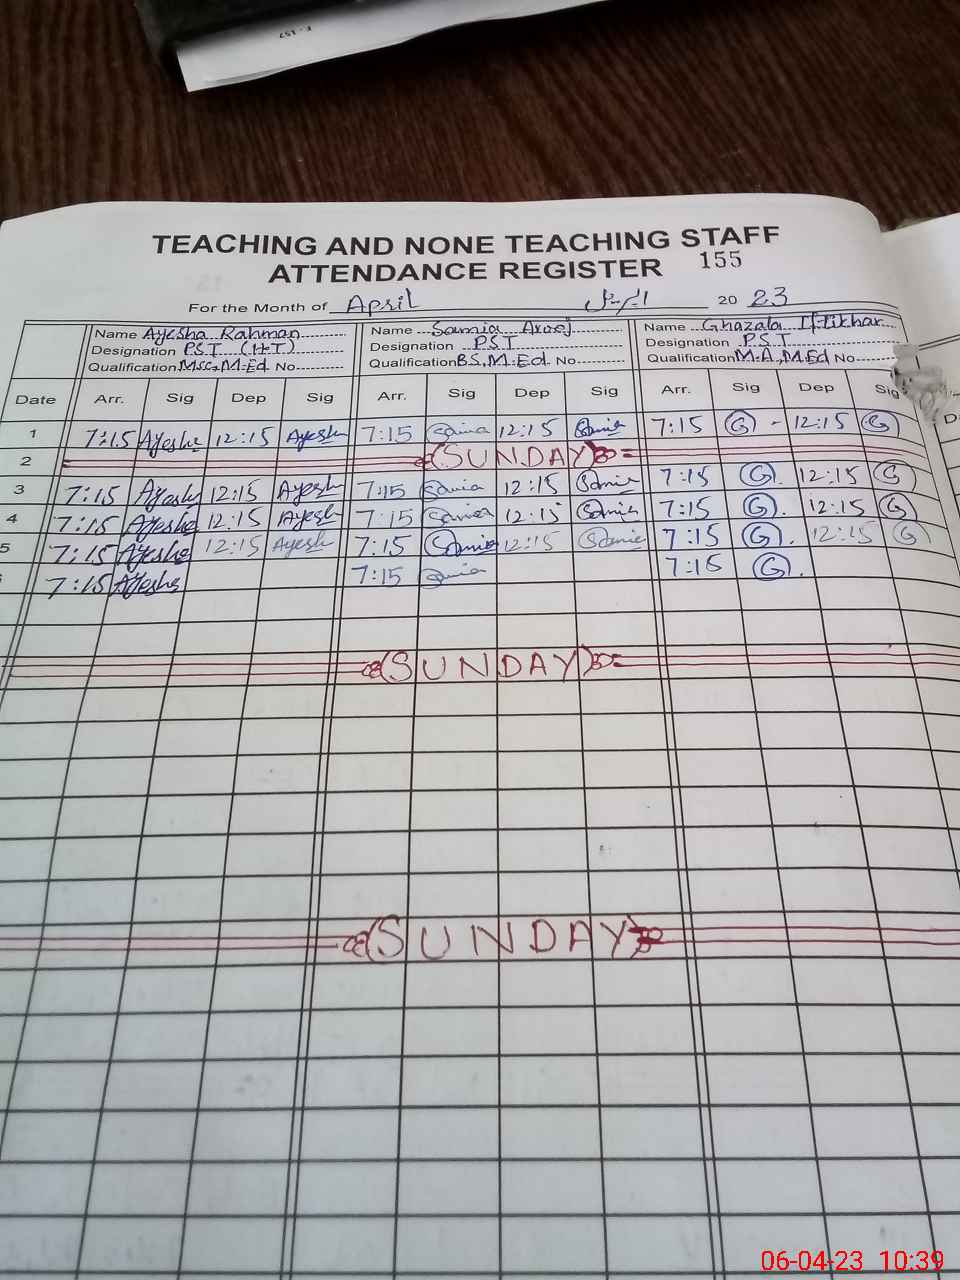 F-157
TEACHING AND NONE TEACHING STAFF
ATTENDANCE REGISTER 155
For the Month of April اپریل 20 23
Name Ayesha Rahman Name Samia Arooj Name Ghazala Iftikhar
Designation PST (H.T) Designation PST Designation PST
Qualification Msc, M.Ed No Qualification BS, M.Ed No Qualification M.A, M.Ed No
Date Arr. Sig Dep Sig Arr. Sig Dep Sig Arr. Sig Dep Sig
1 7:15 Ayesha 12:15 Ayesha 7:15 Samia 12:15 Samia 7:15 G - 12:15 G
2 (SUNDAY)
3 7:15 Ayesha 12:15 Ayesha 7:15 Samia 12:15 Samia 7:15 G. 12:15 G
4 7:15 Ayesha 12:15 Ayesha 7:15 Samia 12:15 Samia 7:15 G. 12:15 G
5 7:15 Ayesha 12:15 Ayesha 7:15 Samia 12:15 Samia 7:15 G. 12:15 G
7:15 Ayesha 7:15 Samia 7:15 G.
(SUNDAY)
(SUNDAY)
06-04-23 10:39